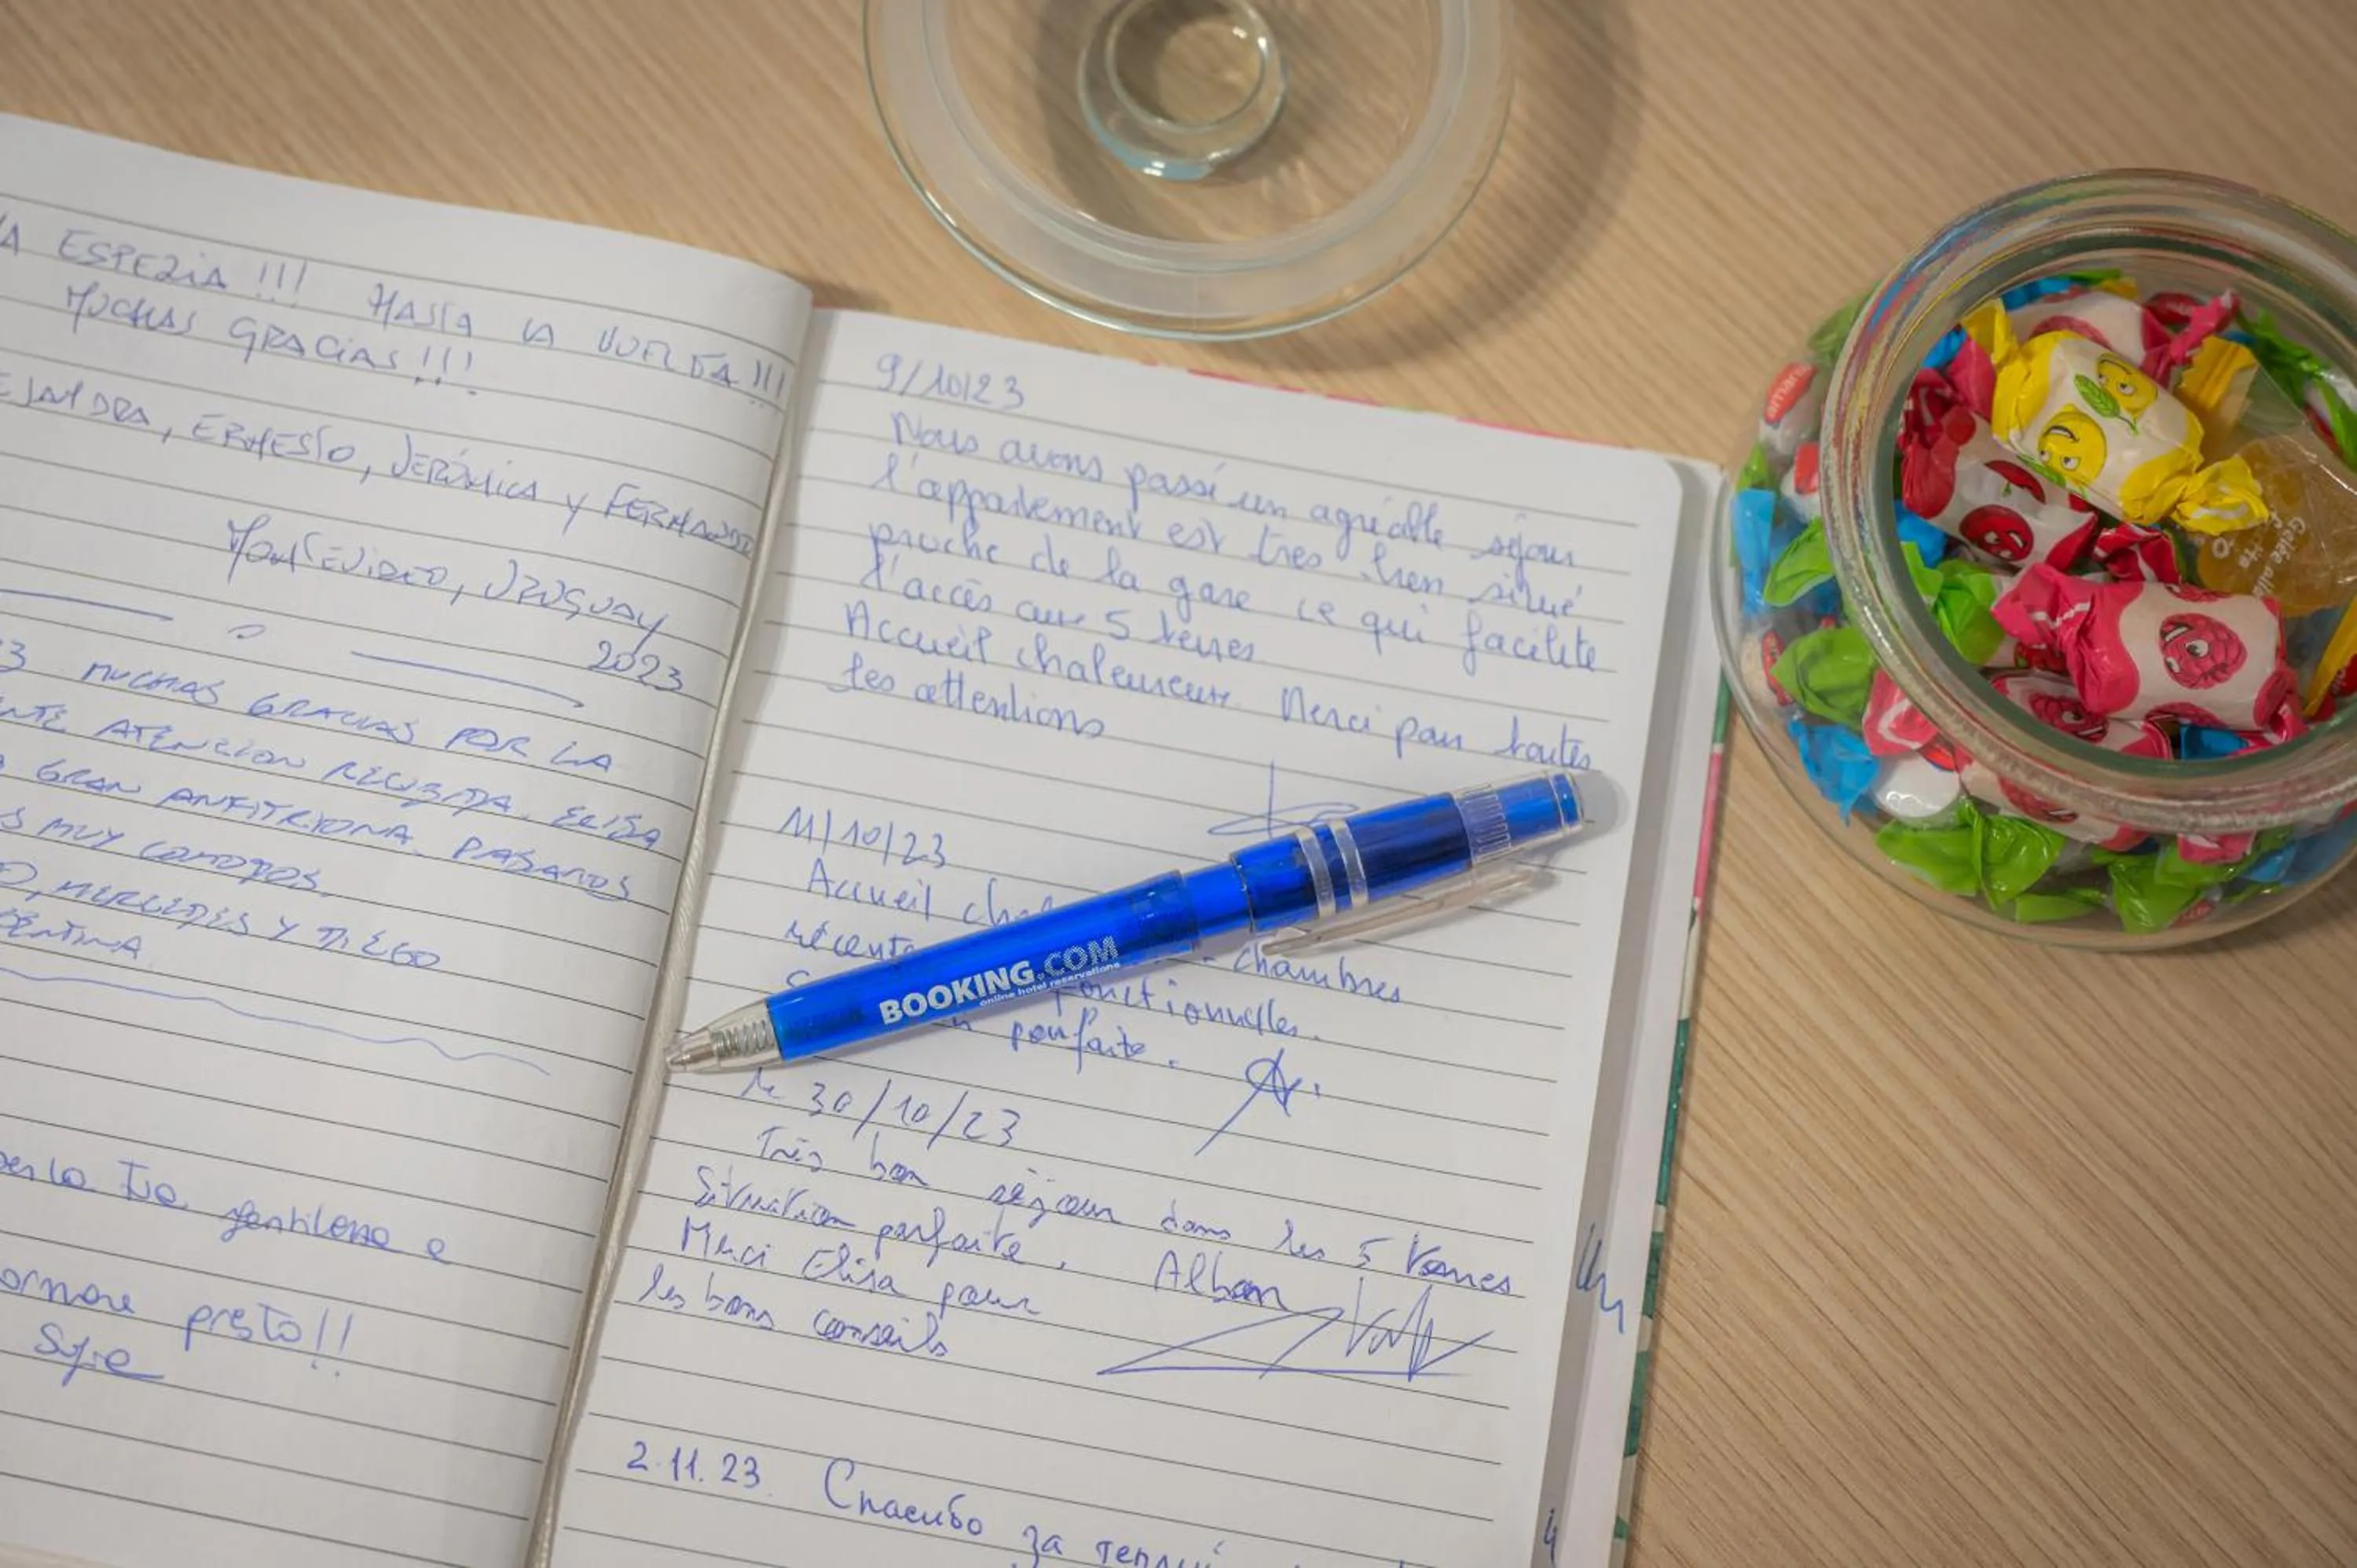 A ESPEZIA!!! HASTA LA VUELTA!!!
MUCHAS GRACIAS!!!
EJANDRA, ERNESTO, JERÓNICA Y FERNANDO
MONTEVIDEO, URUGUAY
2023
3 MUCHAS GRACIAS POR LA
NTE ATENCION RECIBIDA. ELISA
GRAN ANFITRIONA. PASAMOS
S MUY COMODOS.
O, MERCEDES Y DIEGO
ENTINA
per la tua gentilezza e
ornare presto!!
9/10/23
Nous avons passé un agréable séjour
l'appartement est tres bien situé
proche de la gare ce qui facilite
l'accès aux 5 terres
Accueil chaleureux. Merci pour toutes
les attentions
11/10/23
Accueil cha
récente chambres
fonctionnelles.
parfaite.
le 30/10/23
Très bon séjour dans les 5 Terres
Situation parfaite.
Merci Elisa pour Alban
les bons conseils
2.11.23. Спасибо за теплый
BOOKING.COM
online hotel reservations